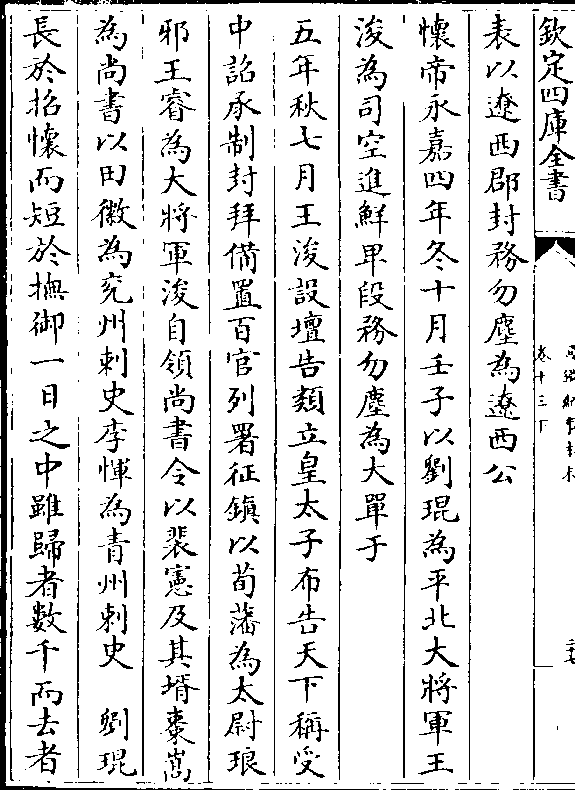 欽定四庫全書
卷十三下
表以遼西郡封務勿塵為遼西公
懷帝永嘉四年冬十月壬子以劉琨為平北大將軍王
浚為司空進鮮卑段務勿塵為大單于
五年秋七月王浚設壇告類立皇太子布告天下稱受
中詔承制封拜備置百官列署征鎮以荀藩為太尉琅
邪王睿為大將軍浚自領尚書令以裴憲及其壻棗嵩
為尚書以田徽為兖州刺史李惲為青州刺史 劉琨
長於招懷而短於撫御一日之中雖歸者數千而去者